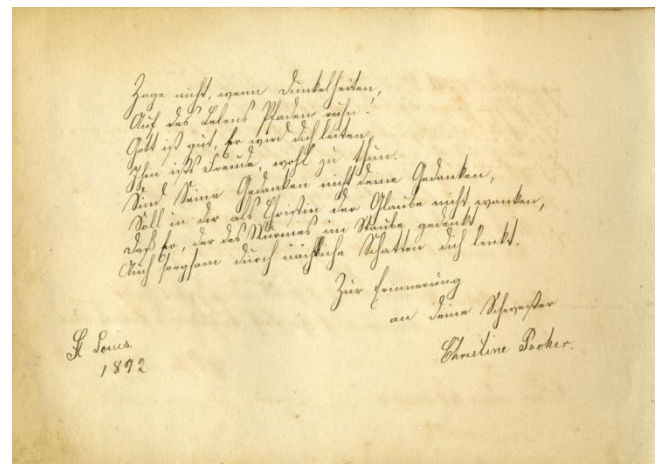 Zage nicht, wenn Dunkelheiten,
Auf des Lebens Pfaden ruhn!
Gott ist gut, Er wird dich leiten
Ihm ists Freude, wohl zu thun.
Sind Seine Gedanken nicht deine Gedanken,
Soll in dir als Christin der Glaube nicht wanken,
Daß Er, der des Wurmes im Staube gedenkt
Auch sorgsam durch nächtliche Schatten dich lenkt.
Zur Erinnerung
an deine Schwester
Christine
St Louis.
1892